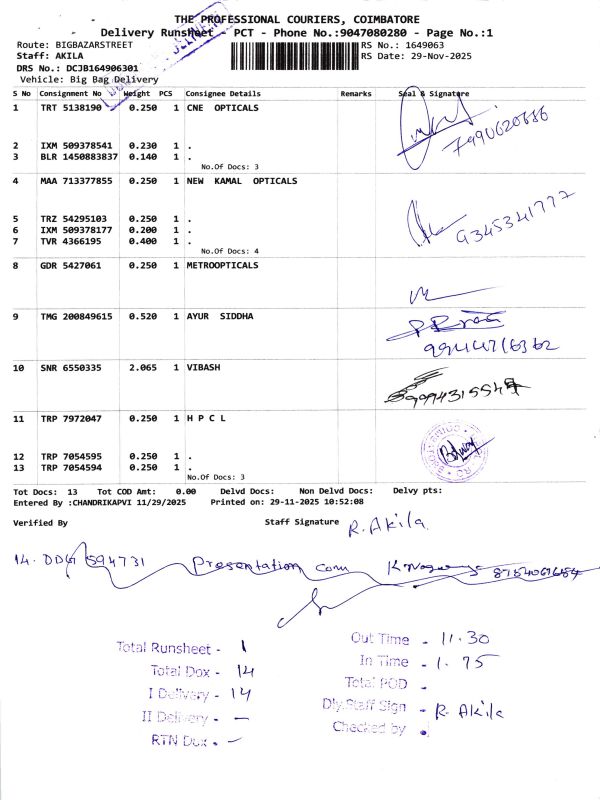 THE PROFESSIONAL COURIERS, COIMBATORE
Delivery Runsheet - PCT - Phone No.:9047080280 - Page No.:1
Route: BIGBAZARSTREET RS No.: 1649063
Staff: AKILA RS Date: 29-Nov-2025
DRS No.: DCJB164906301
Vehicle: Big Bag Delivery
DELIVERY
S No Consignment No Weight PCS Consignee Details Remarks Seal & Signature
1 TRT 5138190 0.250 1 CNE OPTICALS
7990620686
2 IXM 509378541 0.230 1 .
3 BLR 1450883837 0.140 1 .
No.Of Docs: 3
4 MAA 713377855 0.250 1 NEW KAMAL OPTICALS
9345341777
5 TRZ 54295103 0.250 1 .
6 IXM 509378177 0.200 1 .
7 TVR 4366195 0.400 1 .
No.Of Docs: 4
8 GDR 5427061 0.250 1 METROOPTICALS
9 TMG 200849615 0.520 1 AYUR SIDDHA
10 SNR 6550335 2.065 1 VIBASH
11 TRP 7972047 0.250 1 H P C L
12 TRP 7054595 0.250 1 .
13 TRP 7054594 0.250 1 .
No.Of Docs: 3
Tot Docs: 13 Tot COD Amt: 0.00 Delvd Docs: Non Delvd Docs: Delvy pts:
Entered By :CHANDRIKAPVI 11/29/2025 Printed on: 29-11-2025 10:52:08
Verified By Staff Signature R. Akila
14. DDG 594731 Presentation Con
Total Runsheet - 1
Total Dox - 14
I Delivery - 14
II Delivery - —
RTN Dox - —
Out Time - 11.30
In Time - 1.75
Total POD -
Dly.Staff Sign - R. Akila
Checked by -